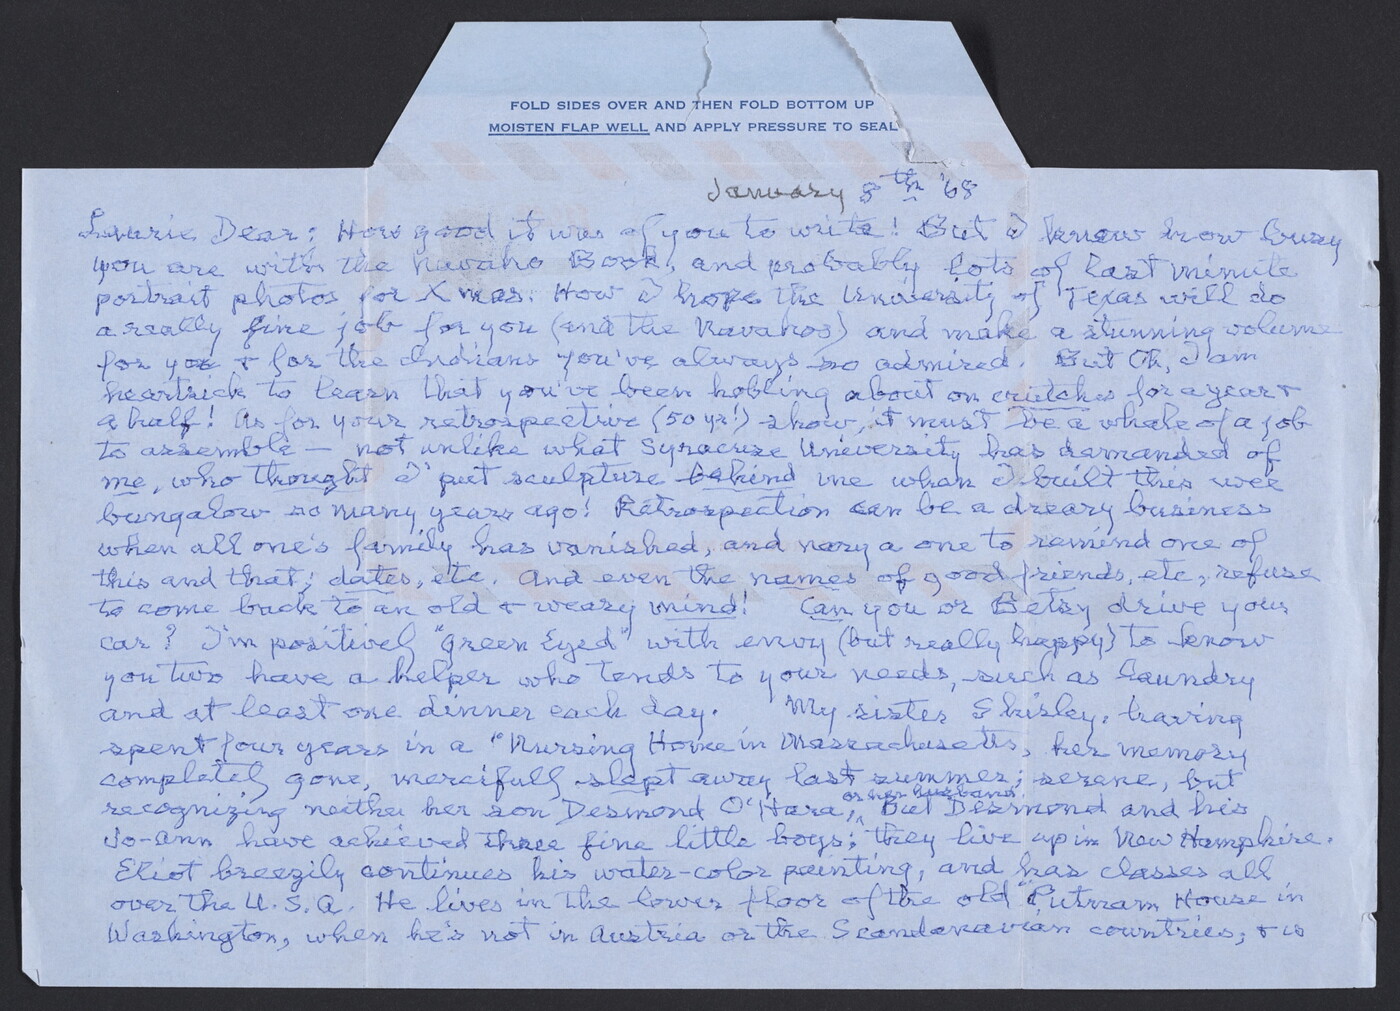 FOLD SIDES OVER AND THEN FOLD BOTTOM UP
MOISTEN FLAP WELL AND APPLY PRESSURE TO SEAL
January 8th '68
Laurie Dear; How good it was of you to write! But I know how busy
you are with the Navaho Book, and probably lots of last minute
portrait photos for Xmas. How I hope the University of Texas will do
a really fine job for you (and the Navahos) and make a stunning volume
for you & for the Indians you've always so admired. But Oh, I am
heartsick to learn that you've been hobling about on crutches for a year &
a half! As for your retrospective (50 yr!) show, it must be a whale of a job
to assemble — not unlike what Syracuse University has demanded of
me, who thought I'd put sculpture behind me when I built this wee
bungalow so many years ago! Retrospection can be a dreary business
when all one's family has vanished, and nary a one to remind one of
this and that; dates, etc. And even the names of good friends, etc, refuse
to come back to an old & weary mind! Can you or Betsy drive your
car? I'm positively "Green Eyed" with envy (but really happy) to know
you two have a helper who tends to your needs, such as laundry
and at least one dinner each day. My sister Shirley, having
spent four years in a "Nursing Home in Massachusetts, her memory
completely gone, mercifully slept away last summer; serene, but
recognizing neither her son Desmond O'Hara, or her husband. But Desmond and his
Jo-Ann have achieved three fine little boys; they live up in New Hampshire.
Eliot breezily continues his water-color painting, and has classes all
over the U.S.A. He lives in the lower floor of the old "Putnam House in
Washington, when he's not in Austria or the Scandanavian countries; & is